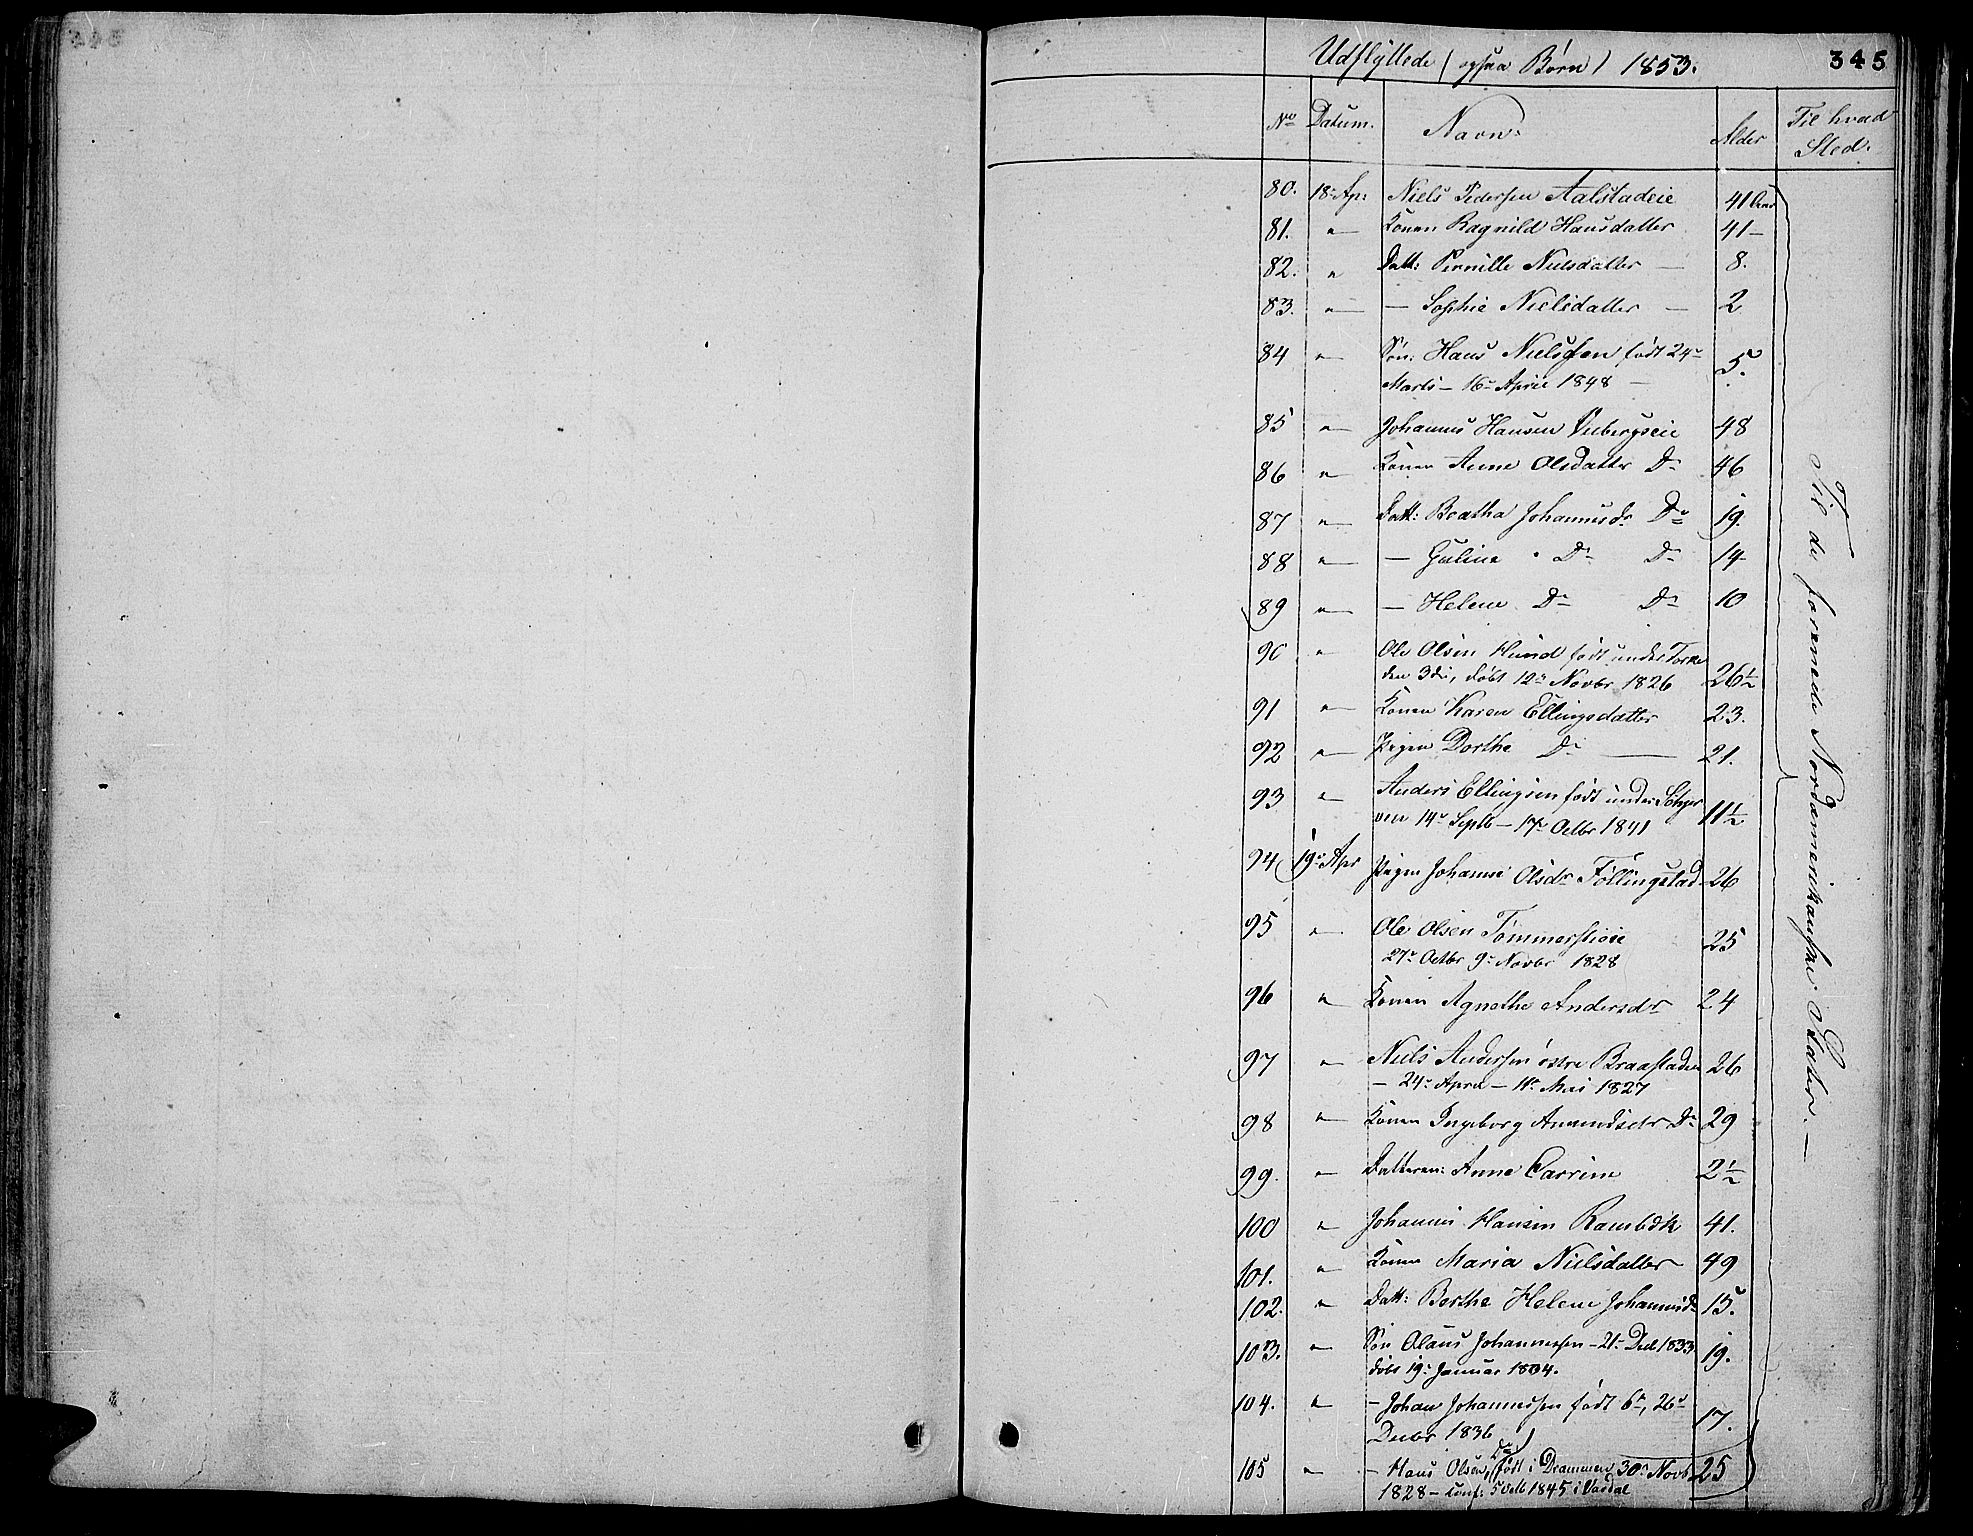 345
Udflyttede (ogsaa Børn) 1853.
No Datum. Navn. Alder Til hvad Sted.
80. 18. Ap: Niels Pedersen Aalstadeie 41
81. " Konen Ragnild Hansdatter 41
82. " Datt: Pernille Nielsdatter 8.
83. " — Sophie Nielsdatter 2
84 " Søn: Hans Nielssen født 24
Marts — 16 April 1848 5.
85 " Johannes Hansen 48
86 " Konen Anne Olsdatter Do 46
87 " Datt: Beatha Johannesdr Do 19.
88 " — Guline Do Do 14
89 " — Helene Do Do 10
90 " Ole Olsen Hund født under
den 3die, døbt 12 Novbr 1826 26½
91 " Konen Karen Ellingsdatter 23.
92 " Pigen Dorthe Do 21.
93 " Anders Ellingsen født under
14 Septb — 17 Octbr 1841 11½
94 19. Apr Pigen Johanne Olsdr Föllingstad 26
95 " Ole Olsen
27 Octbr 9 Novbr 1828 25
96 " Konen Agnethe Andersdr 24
97 " Niels Andersen østre Braastaden
— 24 April — 11 Mai 1827 26
98 " Konen Ingeborg Amundsdtr Do 29
99. " Datteren: Anne Carrine 2½
100 " Johannes Hansen 41.
101. " Konen Maria Nielsdatter 49
102. " Datt: Berthe Helene Johannesd 15.
103. " Søn Olaus Johannessen — 21 Dec 1833
døbt 19 Januar 1834. 19.
104. " — Johan Johannessen født 6, 26
Decbr 1836 17.
105 " — Hans Olsen, født i Drammen 30 Novb 25
1828 — conf. 5 Octb 1845 i Vardal
Til de forenede Nordamerikanske Stater.—